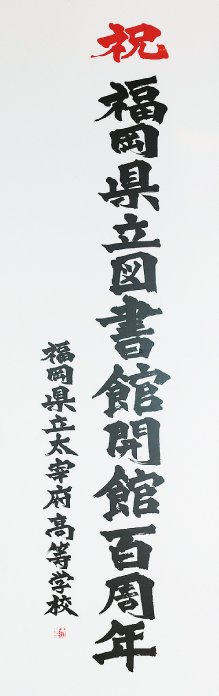 祝
福岡県立図書館開館百周年
福岡県立太宰府高等学校